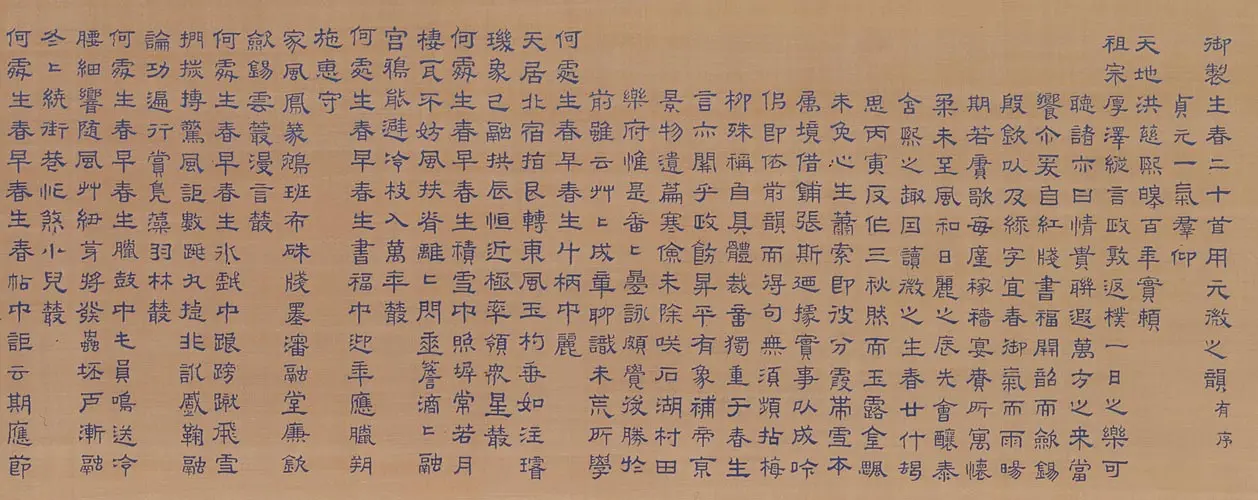 御製生春二十首用元微之韻 有序
貞元一氣羣仰
天地洪慈熙皥百年實賴
祖宗厚澤縱言政敦返樸一日之樂可
聽諸亦曰情貴聯遐萬方之來當
饗亦爰自紅牋書福開韶而斂錫
殷歛以及綵字宜春御氣而雨暘
期若賡歌每廑稼穡宴賚所寓懷
柔未至風和日麗之辰先會釀泰
含熙之趣因讀微之生春廿什朅
思丙寅反作三秋然而玉露金飄
未免心生蕭索即彼分霞帶雪本
屬境借鋪張斯迺據實事以成吟
侶即依前韻而得句無須頻拈梅
柳殊稱自具體裁音獨重于春生
言亦關乎政飭昇平有象補帝京
景物遺篇寒儉未除咲石湖村田
樂府惟是番〻疊詠頗覺後勝於
前雖云艸〻成章聊識未荒所學
何處生春早春生斗柄中麗
天居北宿指艮轉東風玉杓垂如注璿
璣象已融拱辰恒近極率領衆星叢
何處生春早春生積雪中照墀常若月
棲瓦不妨風扶脊離〻閃亞簷滴〻融
宮鴉能避冷枝入萬年叢
何處生春早春生書福中迎年應臘朔
施惠守
家風鳳篆鵷班布硃牋墨瀋融堂廉欽
斂錫雲叢漫言叢
何處生春早春生氷戲中踉蹡蹴飛雪
捫搂摶驚風詎數跳丸捷非訛蹙鞠融
論功遍行賞鳧藻羽林叢
何處生春早春生臘鼓中員鳴送冷
腰細響隨風艸紐芽將發蟲坯戶漸融
冬〻統街巷忙煞小兒叢
何處生春早春生春帖中詎云期應節